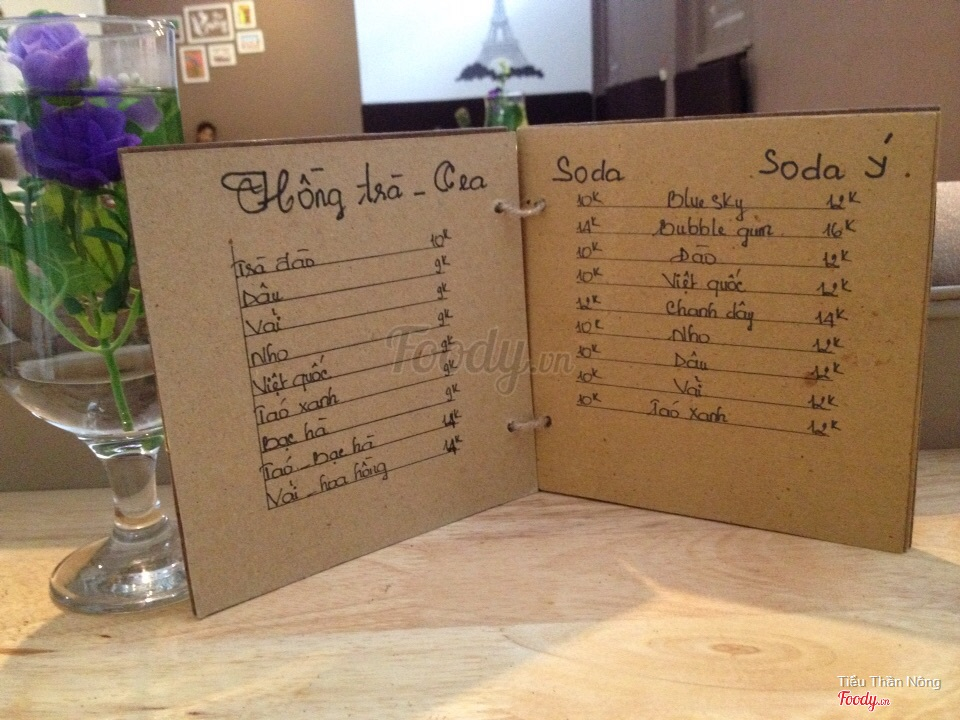 Hồng trà - Tea
Trà đào 10k
Dâu 9k
Vải 9k
Nho 9k
Việt quốc 9k
Táo xanh 9k
Bạc hà 9k
Táo - Bạc hà 14k
Vải - hoa hồng 14k
Soda Soda Ý.
10k Blue sky 12k
14k Bubble gum 16k
10k Đào 12k
10k Việt quốc 12k
12k Chanh dây 14k
10k Nho 12k
10k Dâu 12k
10k Vải 12k
10k Táo xanh 12k
Foody.vn
Tiểu Thần Nông
Foody.vn